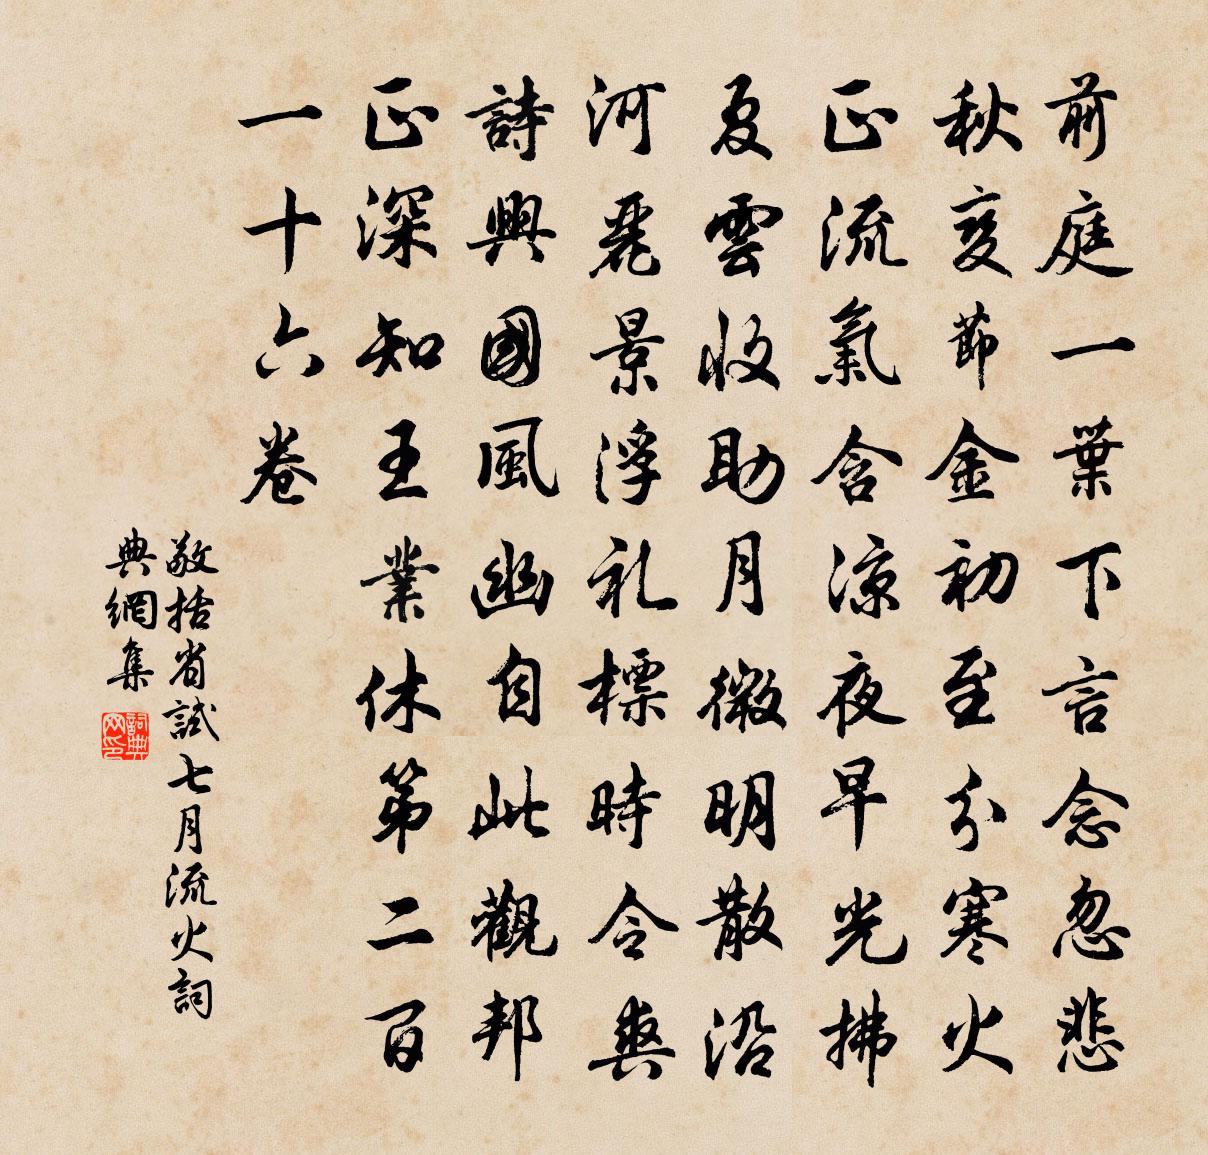 前庭一葉下言念忽悲
秋變節金初至分寒火
正流氣含涼夜早光拂
夏雲收助月微明散沿
河麗景浮礼標時令爽
詩興國風幽自此觀邦
正深知王業休第二百
一十六卷
敬括省試七月流火詞
典網集
詞典网印